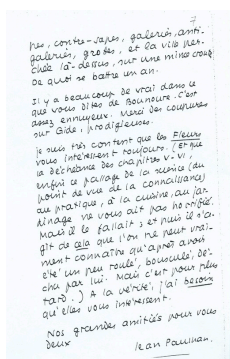 7
pes, contre-sapes, galeries, anti-
galeries, grottes, et la ville per-
chée là-dessus, sur une mince croûte
De quoi se battre un an.
Il y a beaucoup de vrai dans ce
que vous dites de Bounoure. C'est
assez ennuyeux. Merci des coupures
sur Gide, prodigieuses.
Je suis très content que les Fleurs
vous intéressent toujours. (Et que
la déchéance des chapitres V-VI,
enfin ce passage de la science (du
point de vue de la connaissance)
au pratique, à la cuisine, au jar-
dinage ne vous ait pas horrifié.
Mais il le fallait; et puis il s'a-
git de cela que l'on ne peut vrai-
ment connaître qu'après avoir
été un peu roulé, bousculé, dé-
chu par lui. Mais c'est pour plus
tard.) A la vérité, j'ai besoin
qu'elles vous intéressent.
Nos grandes amitiés pour vous
deux
Jean Paulhan.